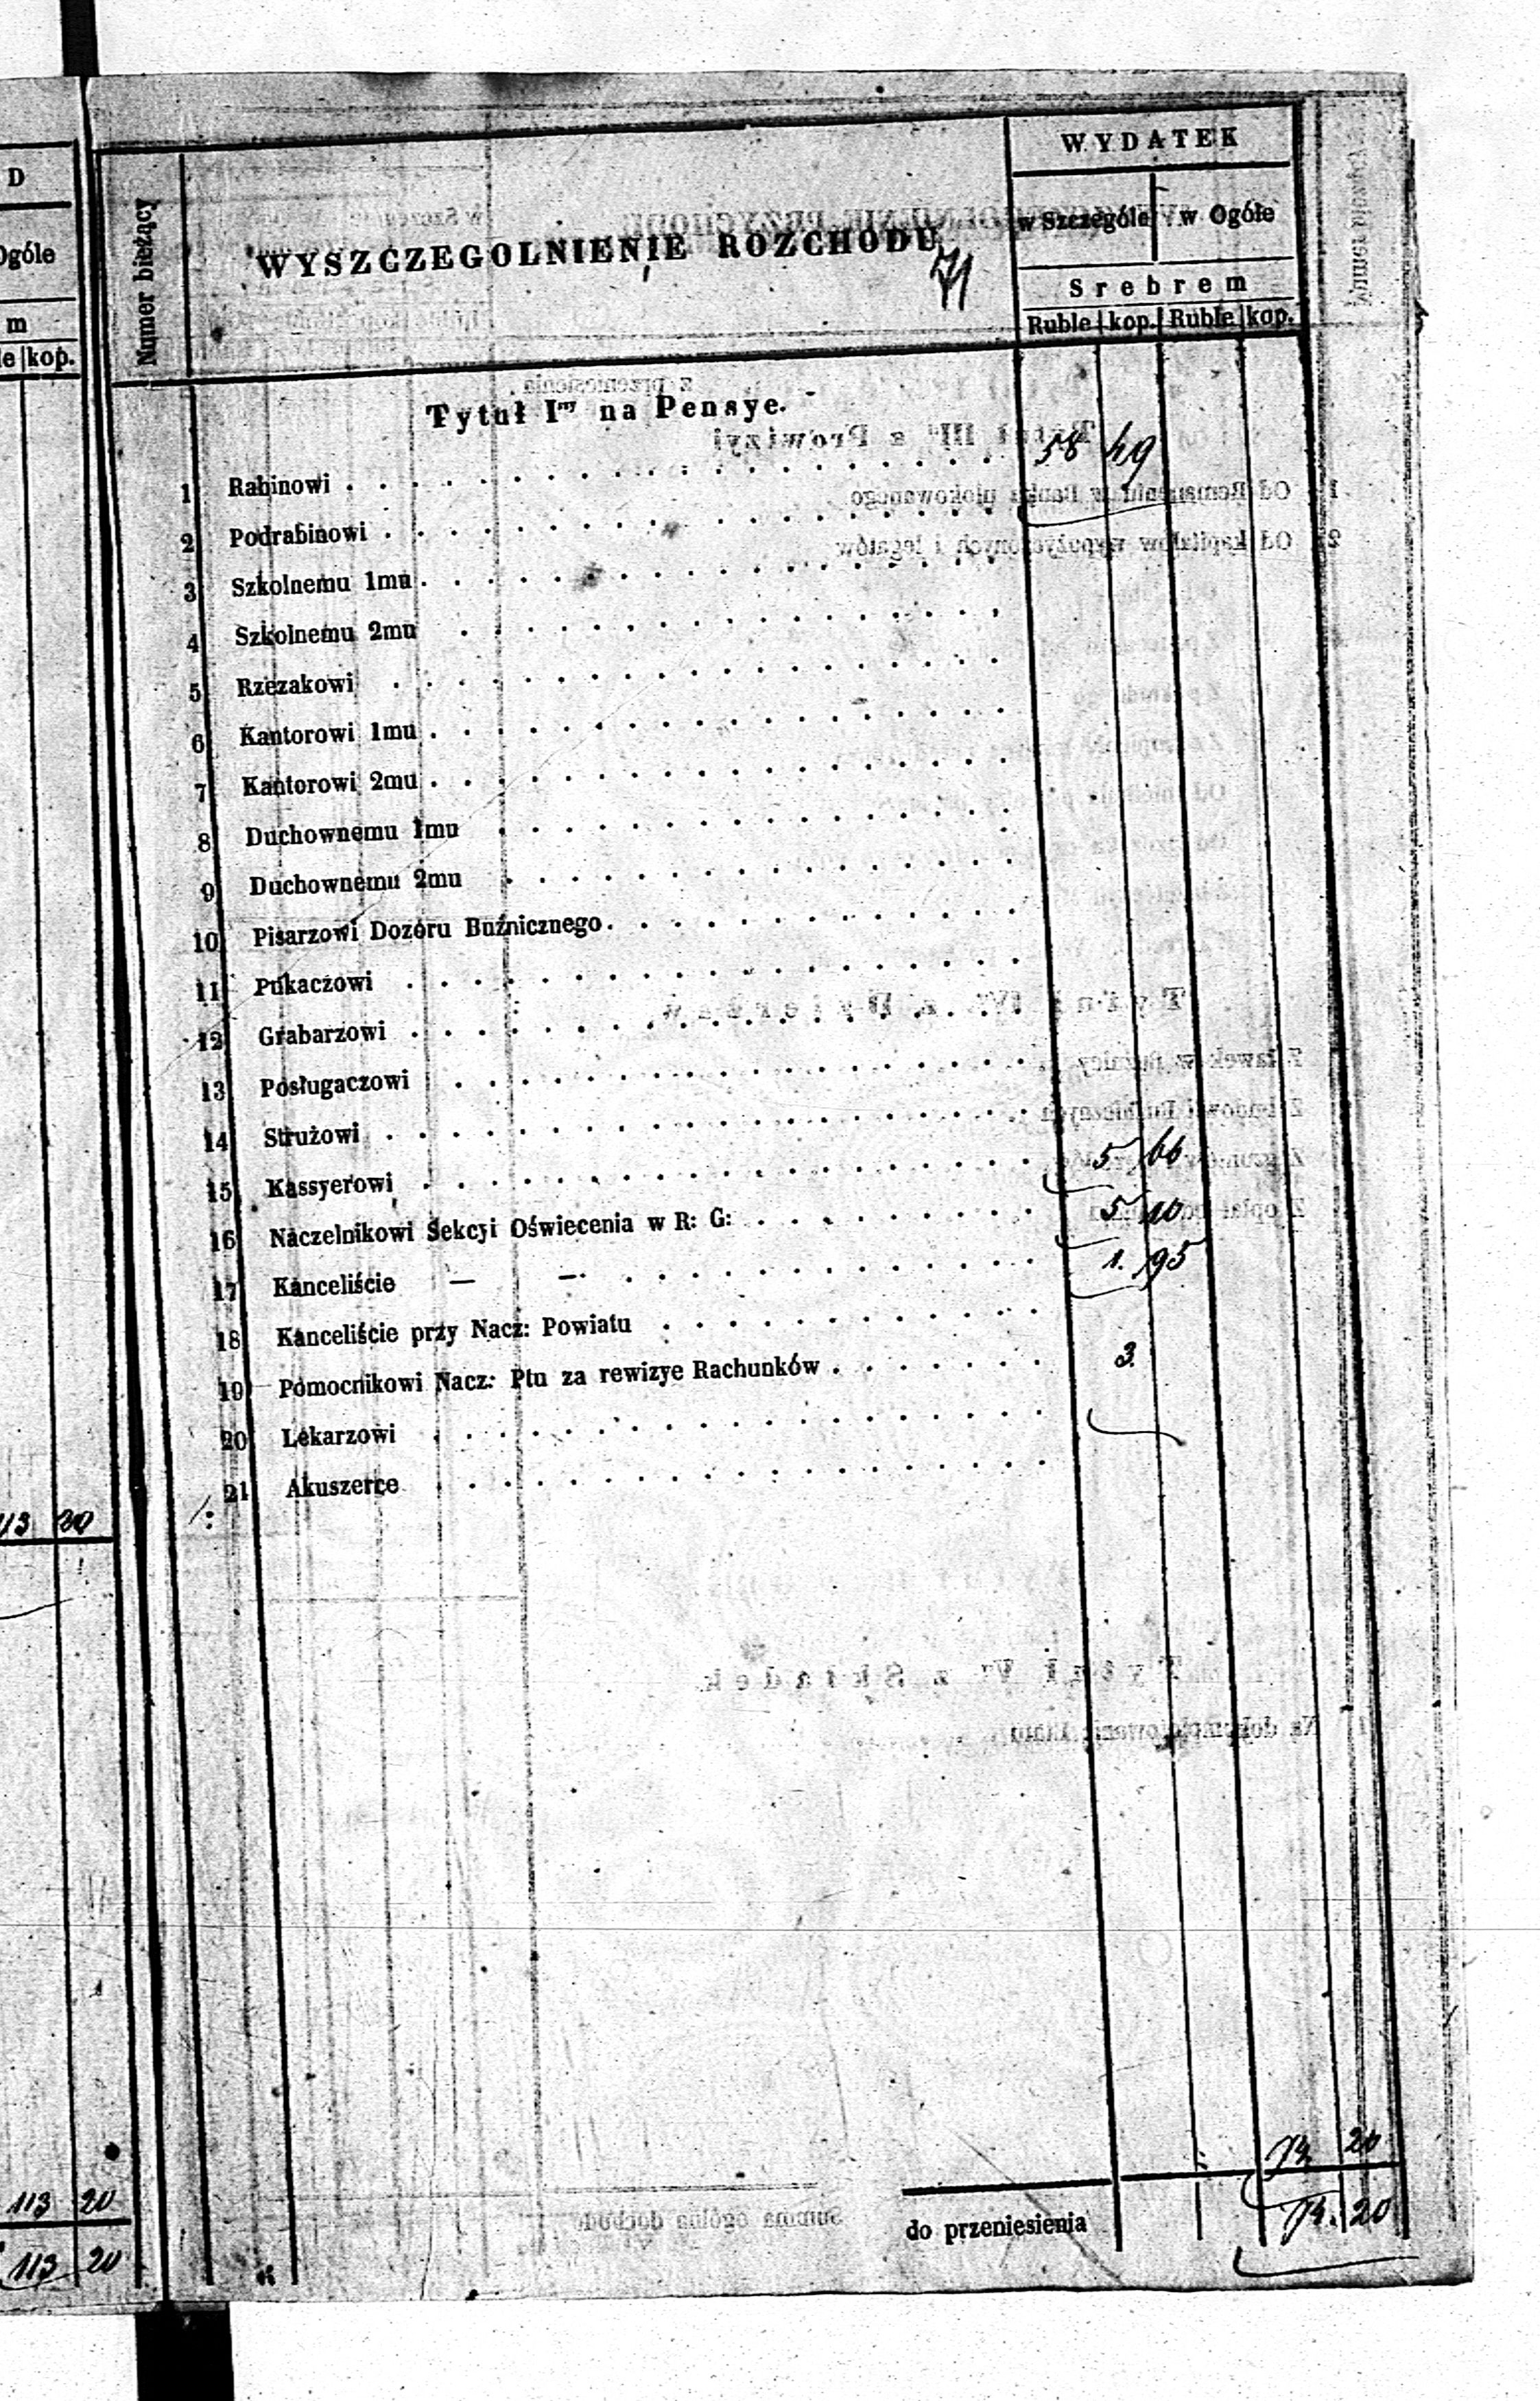 D
Ogóle
m
le kop.
113 20
113 20
113 20
Numer bieżący
WYSZCZEGOLNIENIE ROZCHODU
71
WYDATEK
w Szczególe w Ogóle
Srebrem
Ruble kop. Ruble kop.
Tytuł Iszy na Pensye.
1 Rabinowi 58 49
2 Podrabinowi
3 Szkolnemu 1mu
4 Szkolnemu 2mu
5 Rzezakowi
6 Kantorowi 1mu
7 Kantorowi 2mu
8 Duchownemu 1mu
9 Duchownemu 2mu
10 Pisarzowi Dozoru Buźnicznego
11 Pukaczowi
12 Grabarzowi
13 Posługaczowi
14 Strużowi
15 Kassyerowi 5 66
16 Naczelnikowi Sekcyi Oświecenia w R: G: 5 10
17 Kanceliście — — 1. 95
18 Kanceliście przy Nacz: Powiatu
19 Pomocnikowi Nacz: Ptu za rewizye Rachunków 3
20 Lekarzowi
21 Akuszerce
74 20
do przeniesienia 74. 20